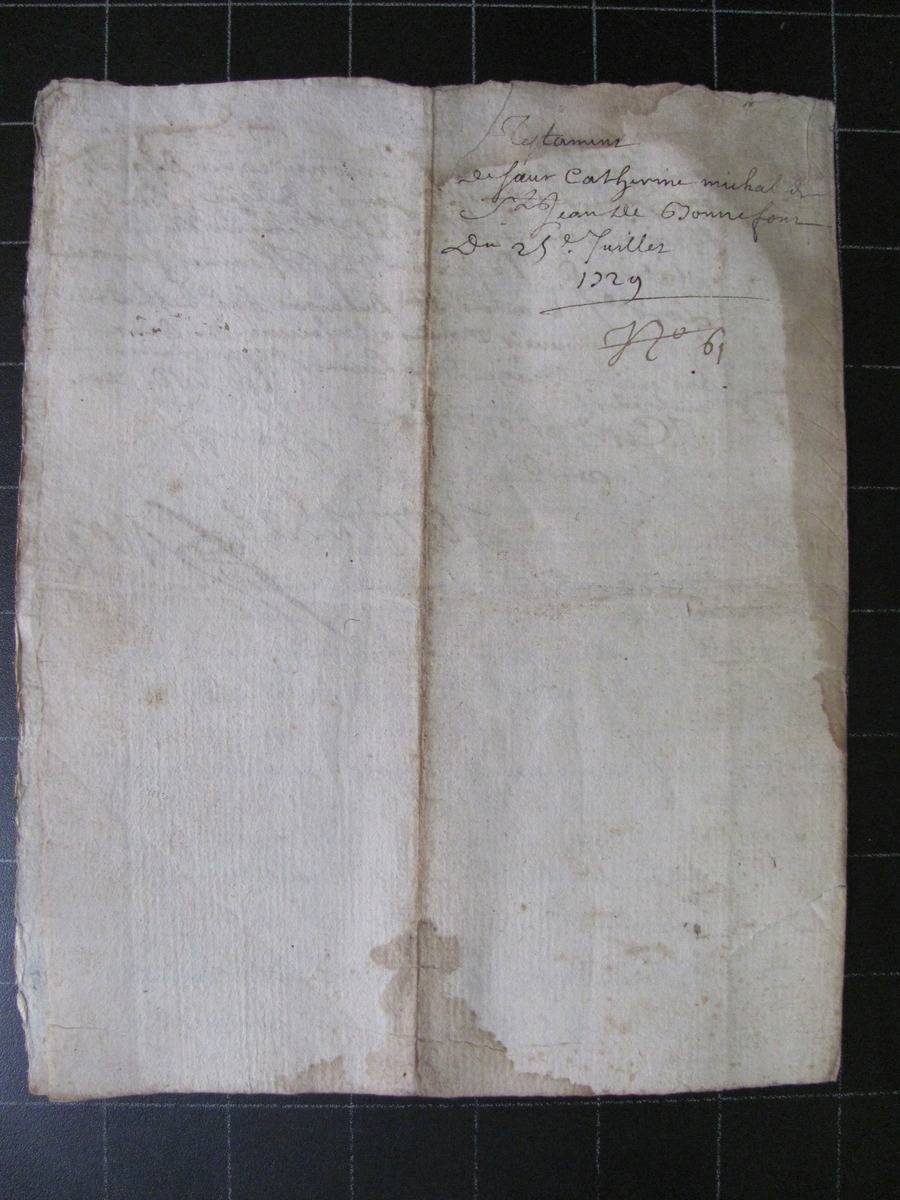 Testament
De sœur Catherine michal de
St Jean De Bonnefont
Du 25e. Juillet
1729
No 61